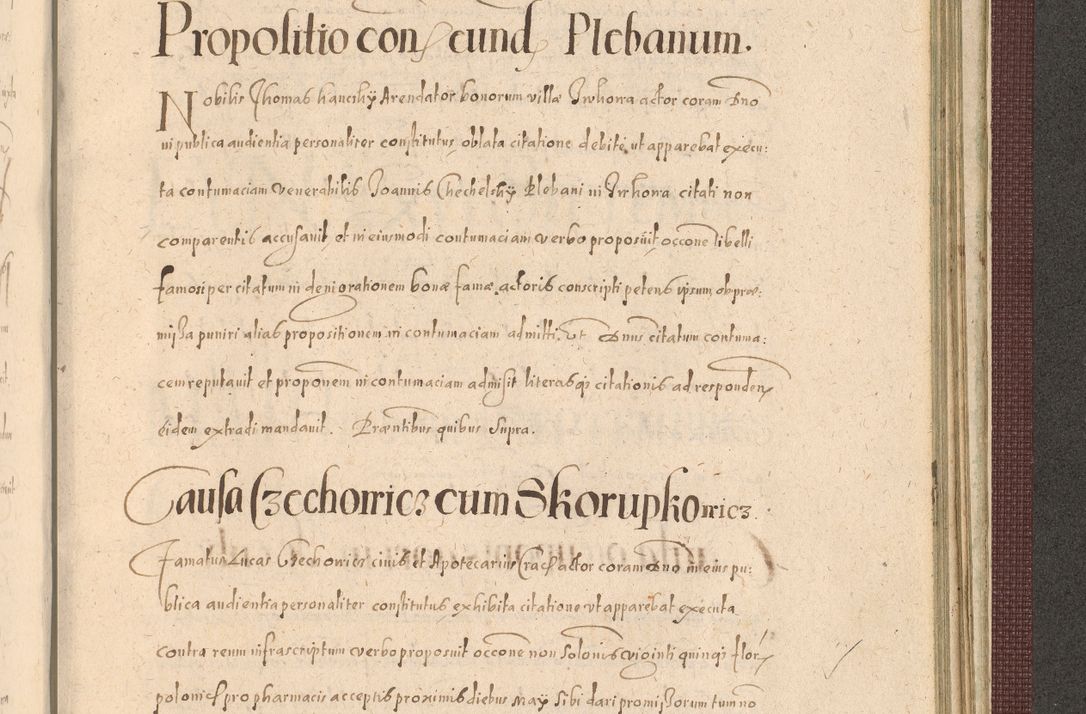 Propositio con eund Plebanum.
Nobilis Thomas hancshÿ Arendator bonorum villæ Irzhowa actor coram Dno
in publica audientia personaliter constitutus oblata citatione debite, ut apparebat execu:
ta contumaciam Venerabilis Joannis Chechelshÿ Plebani in Irzhowa citati non
comparentis accusavit, et in eiusmodi contumaciam verbo proposuit occone libelli
famosi per citatum in denigrationem bonæ famæ actoris conscripti petens ipsum ob præ:
missa puniri alias propositionem in contumaciam admitti. Vt Dnus citatum contuma:
cem reputavit et proponem in contumaciam admisit literasq₃ citationis ad responden
eidem extradi mandavit. Præntibus quibus supra.
Causa Czechowicz cum Skorupkowicz
Famatus Lucas Czechowicz civis et Apotecarius Crac actor coram Dno in eius pu:
blica audientia personaliter constitutus exhibita citatione vt apparebat executa
contra reum infrascriptum verbo proposuit occone non solonis viginti quinq₃ flor
polonic pro pharmacis acceptis proximis diebus Maÿ sibi dari promissorum tum no